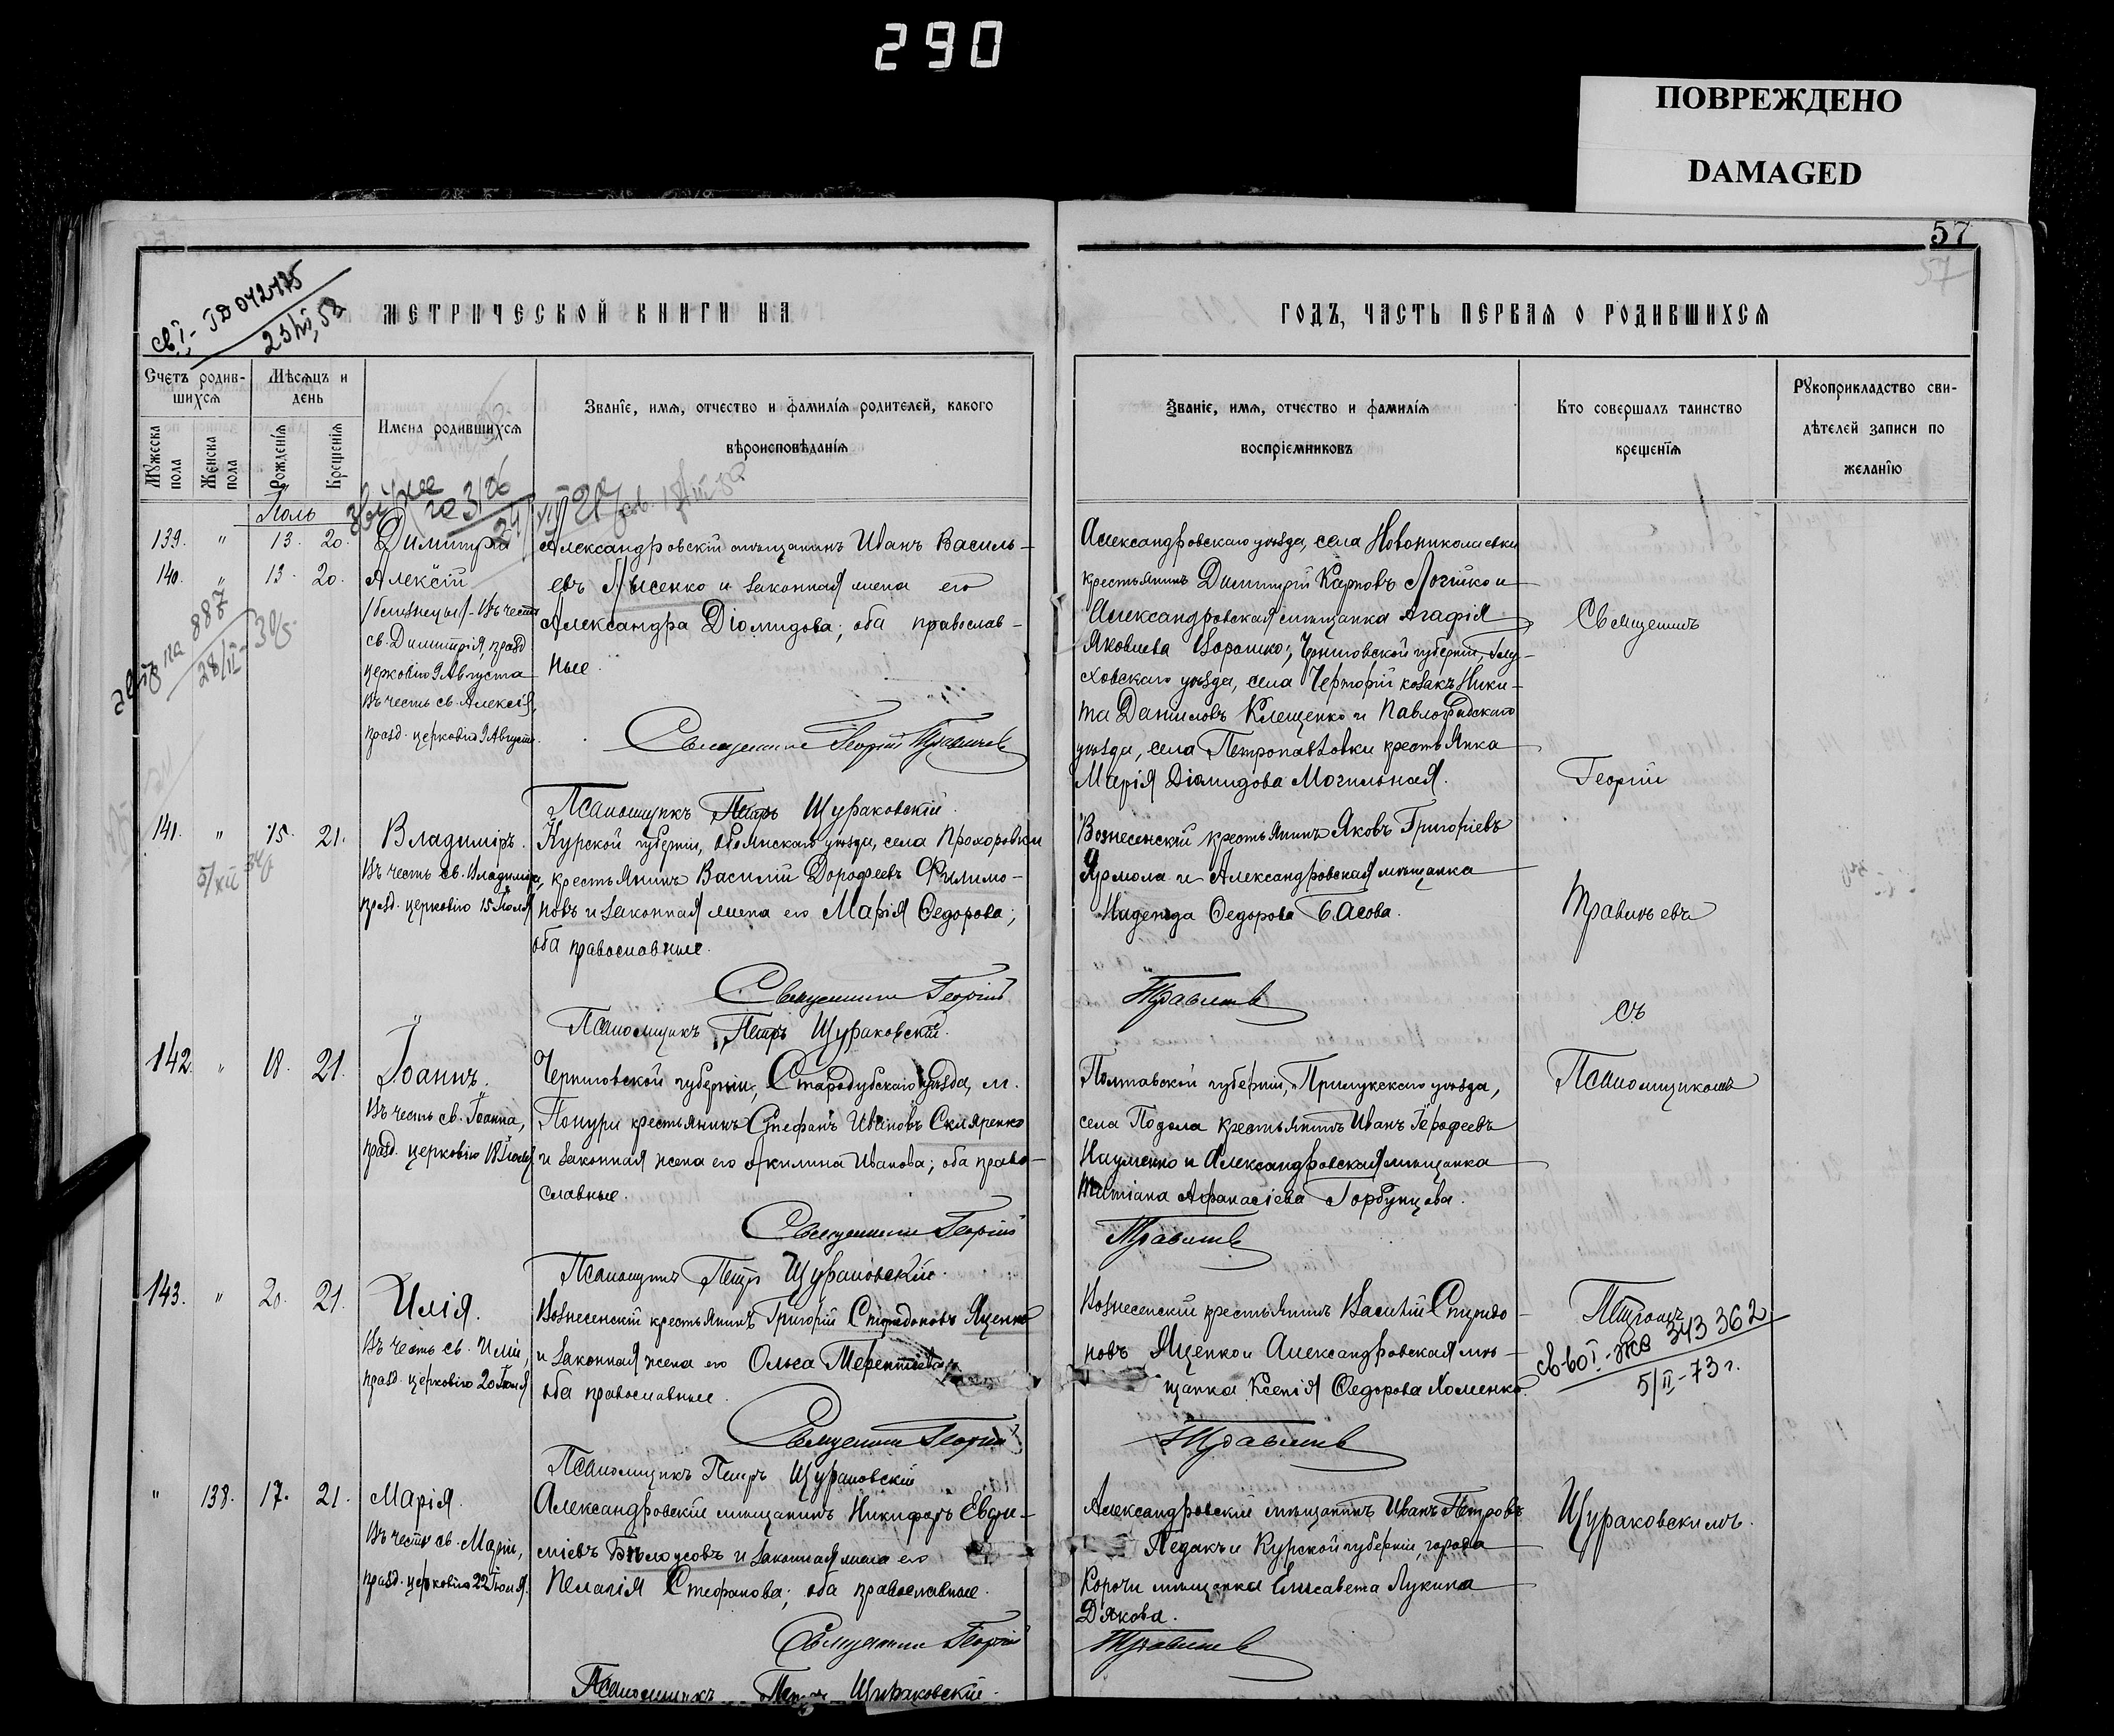 290
ПОВРЕЖДЕНО
DAMAGED
57
57
св. I-
23/
МЕТРИЧЕСКОЙ КНИГИ НА
ГОДЪ, ЧАСТЬ ПЕРВАЯ О РОДИВШИХСЯ
Счетъ родив-
шихся
Мѣсяцъ и
день
Мужеска
пола
Женска
пола
Рожденія
Крещенія
Имена родившихся
Званіе, имя, отчество и фамилія родителей, какого
вѣроисповѣданія
Званіе, имя, отчество и фамилія
воспріемниковъ
Кто совершалъ таинство
крещенія
Рукоприкладство сви-
дѣтелей записи по
желанію
Іюль
139. " 13. 20. Димитрій
140. " 13. 20. Алексій
/близнецы/ - Въ честь
св. Димитрія, празд
церковію 9 Августа
Въ честь св. Алексія,
празд. церковію 9 Августа.
на 887
28/II - 30/5
Александровскій мѣщанинъ Иванъ Василь-
евъ Лысенко и законная жена его
Александра Діомидова; оба православ-
ные.
Священникъ Георгій Травиневъ
Псаломщикъ Петръ Щураковскій.
Александровскаго уѣзда, села Новониколаевки
крестьянинъ Димитрій Карповъ Логійко и
Александровская мѣщанка Агафія
Яковлева Ворошко; Черниговской губерніи, Глу-
ховскаго уѣзда, села Черторій козакъ Ники-
та Даниловъ Клещенко и Павлоградскаго
уѣзда, села Петропавловки крестьянка
Марія Діомидова Могильная.
Священникъ
Георгій
141. " 15. 21. Владиміръ.
Въ честь св. Владиміра,
празд. церковію 15 Іюля
Курской губерніи, Обоянскаго уѣзда, села Прохоровки
крестьянинъ Василій Дорофеевъ Филимо-
новъ и законная жена его Марія Федорова;
оба православные.
Священникъ Георгій
Травиневъ
Псаломщикъ Петръ Щураковскій.
Вознесенскій крестьянинъ Яковъ Григорьевъ
Ярмола и Александровская мѣщанка
Надежда Федорова Басова.
Травиневъ
съ
142. " 18. 21. Іоаннъ.
Въ честь св. Іоанна,
празд. церковію 18 Іюля
Черниговской губерніи, Стародубскаго уѣзда, м.
Понури крестьянинъ Стефанъ Ивановъ Скляренко
и законная жена его Акилина Иванова; оба право-
славные.
Священникъ Георгій
Травиневъ
Псаломщикъ Петръ Щураковскій.
Полтавской губерніи, Прилукскаго уѣзда,
села Подола крестьянинъ Иванъ Іерофеевъ
Науменко и Александровская мѣщанка
Татіана Афанасіева Горбунцова.
Псаломщикомъ
143. " 20. 21. Илія.
Въ честь св. Иліи,
празд. церковію 20 Іюля
Вознесенскій крестьянинъ Григорій Спиридоновъ Яценко
и законная жена его Ольга Терентіева
оба православные.
Священникъ Георгій
Травиневъ
Псаломщикъ Петръ Щураковскій
Вознесенскій крестьянинъ Василій Спиридо-
новъ Яценко и Александровская мѣ-
щанка Ксенія Федорова Хоменко.
Петромъ
св-во I-ЖВ 343362
5/II-73 г.
" 138. 17. 21. Марія.
Въ честь св. Маріи,
празд. церковію 22 Іюля.
Александровскій мѣщанинъ Никифоръ Евфи-
міевъ Бѣлоусовъ и законная жена его
Пелагія Стефанова; оба православные.
Священникъ Георгій
Травиневъ
Псаломщикъ Петръ Щураковскій.
Александровскій мѣщанинъ Иванъ Петровъ
Педакъ и Курской губерніи, города
Корочи мѣщанка Елисавета Лукина
Дьякова.
Щураковскимъ.